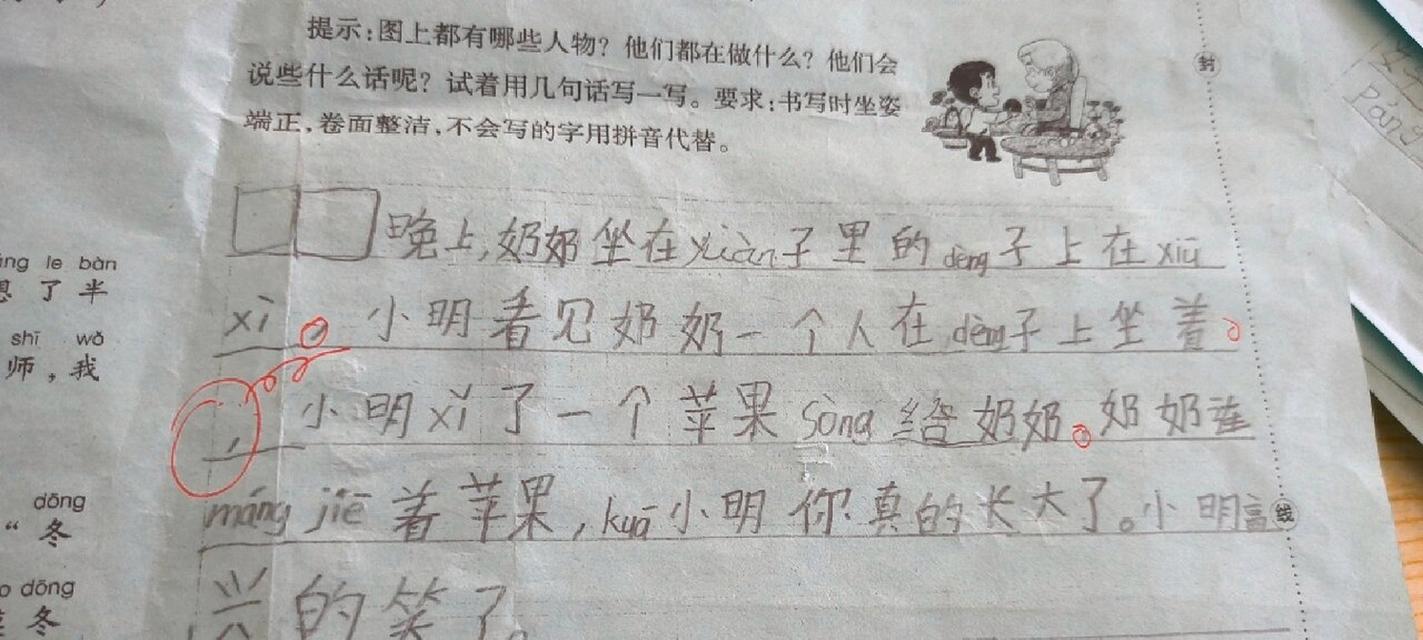 提示:图上都有哪些人物?他们都在做什么?他们会
说些什么话呢?试着用几句话写一写。要求:书写时坐姿
端正,卷面整洁,不会写的字用拼音代替。
封
Páng
晚上,奶奶坐在yuàn子里的dèng子上在xiū
xi。小明看见奶奶一个人在dèng子上坐着。
,小明xǐ了一个苹果sòng给奶奶。奶奶连
máng jiē着苹果,kuā小明你真的长大了。小明高
线
兴的笑了。
ng le bàn
思了半
shī wǒ
师,我
dōng
“冬
o dōng
冬